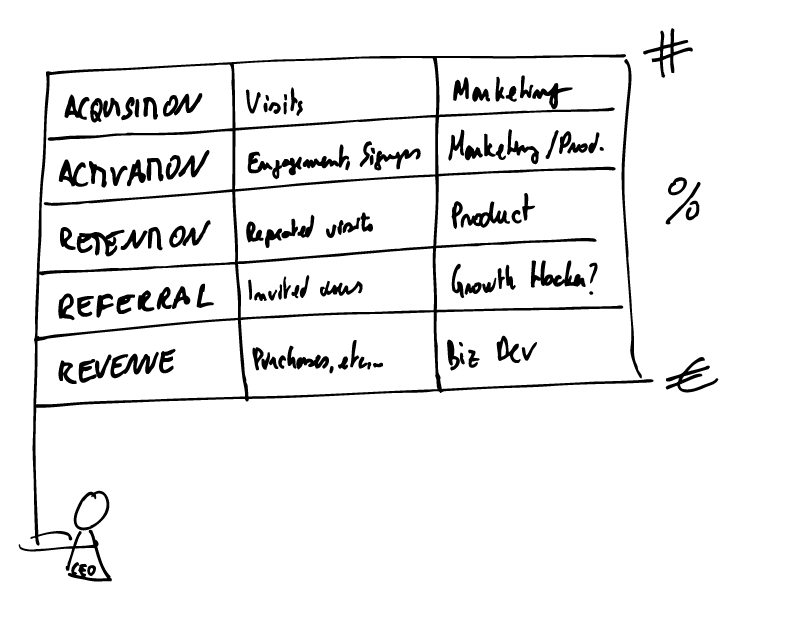 #
ACQUISITION Visits Marketing
ACTIVATION Engagement, Signups Marketing/Prod.
%
RETENTION Repeated visits Product
REFERRAL Invited users Growth Hacker?
REVENUE Purchases, etc... Biz Dev
€
CEO